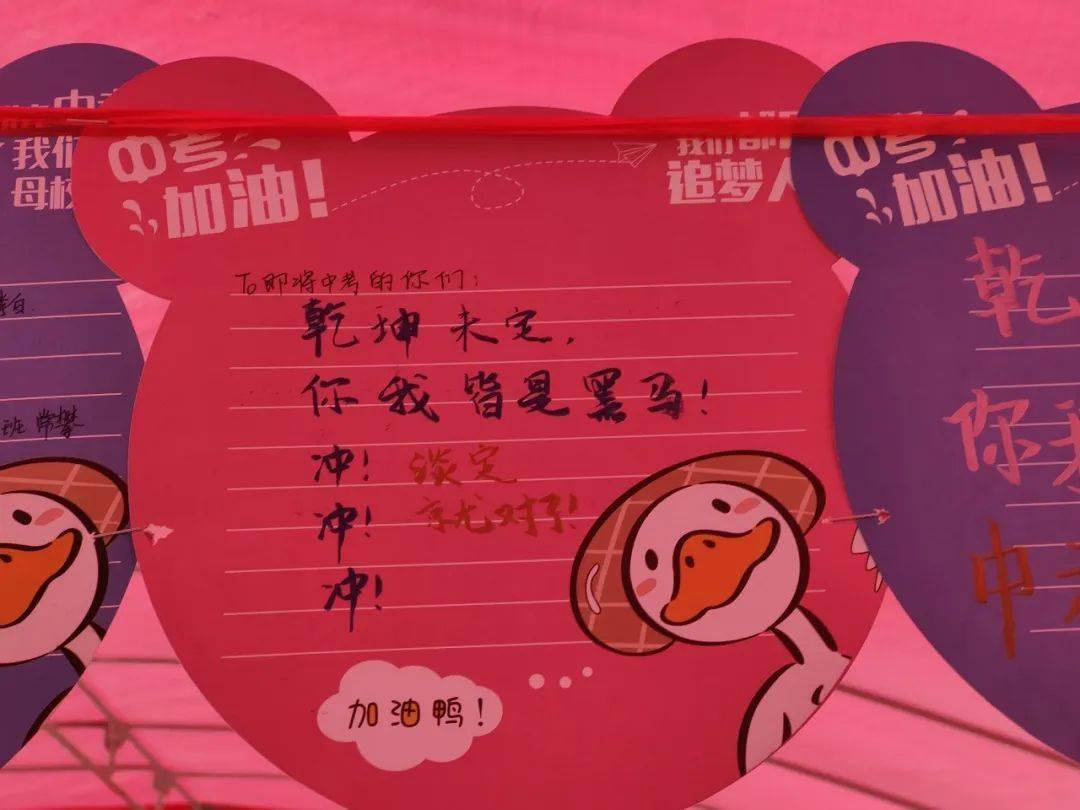 我们
母校
班 常攀
中考
加油!
我们都
追梦人
To即将中考的你们:
乾坤未定,
你我皆是黑马!
冲! 淡定
冲! 就对了!
冲!
加油鸭!
中考
加油!
乾
你我
中考